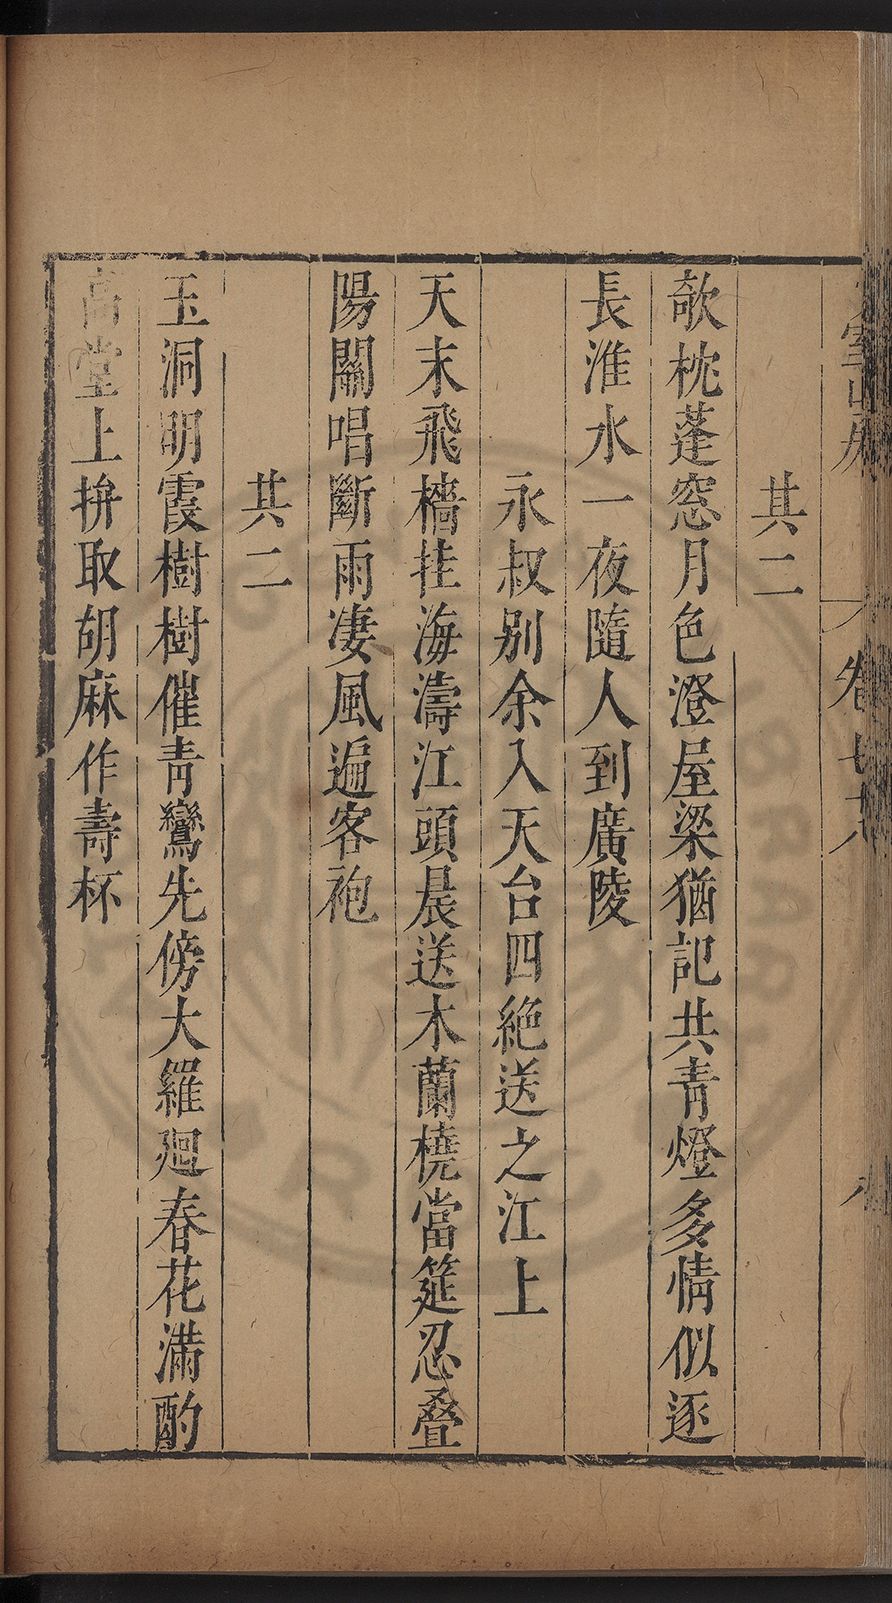 卷七十八
其二
欹枕蓬窓月色澄屋梁猶記共青燈多情似逐
長淮水一夜隨人到廣陵
永叔别余入天台四絶送之江上
天末飛檣挂海濤江頭晨送木蘭橈當筵忍叠
陽關唱斷雨凄風遍客袍
其二
玉洞明霞樹樹催青鸞先傍大羅廻春花滿酌
高堂上拚取胡麻作壽杯